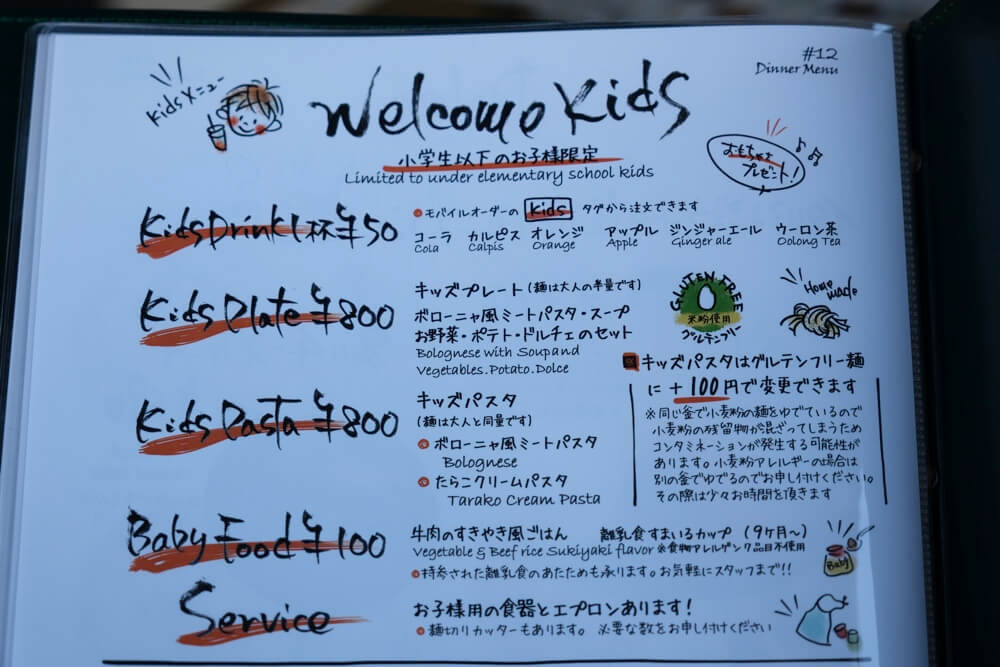 #12
Dinner Menu
Kidsメニュー
Welcome Kids
小学生以下のお子様限定
Limited to under elementary school kids
おもちゃプレゼント!
Kids Drink 1杯 ¥50
モバイルオーダーの Kids タグから注文できます
コーラ カルピス オレンジ アップル ジンジャーエール ウーロン茶
Cola Calpis Orange Apple Ginger ale Oolong Tea
Kids Plate ¥800
キッズプレート(麺は大人の半量です)
ボローニャ風ミートパスタ・スープ
お野菜・ポテト・ドルチェのセット
Bolognese with Soup and
Vegetables.Potato.Dolce
GLUTEN FREE
米粉使用
グルテンフリー
Home made
キッズパスタはグルテンフリー麺
に+100円で変更できます
※同じ釜で小麦粉の麺をゆでているので
小麦粉の残留物が混ざってしまうため
コンタミネーションが発生する可能性が
あります。小麦粉アレルギーの場合は
別の釜でゆでるのでお申し付けください。
その際は少々お時間を頂きます
Kids Pasta ¥800
キッズパスタ
(麺は大人と同量です)
ボローニャ風ミートパスタ
Bolognese
たらこクリームパスタ
Tarako Cream Pasta
Baby Food ¥100
牛肉のすきやき風ごはん 離乳食すまいるカップ (9ヶ月〜)
Vegetable & Beef rice Sukiyaki flavor ※食物アレルゲン 品目不使用
持参された離乳食のあたためも承ります。お気軽にスタッフまで!!
Baby
Service
お子様用の食器とエプロンあります!
麺切りカッターもあります。 必要な数をお申し付けください